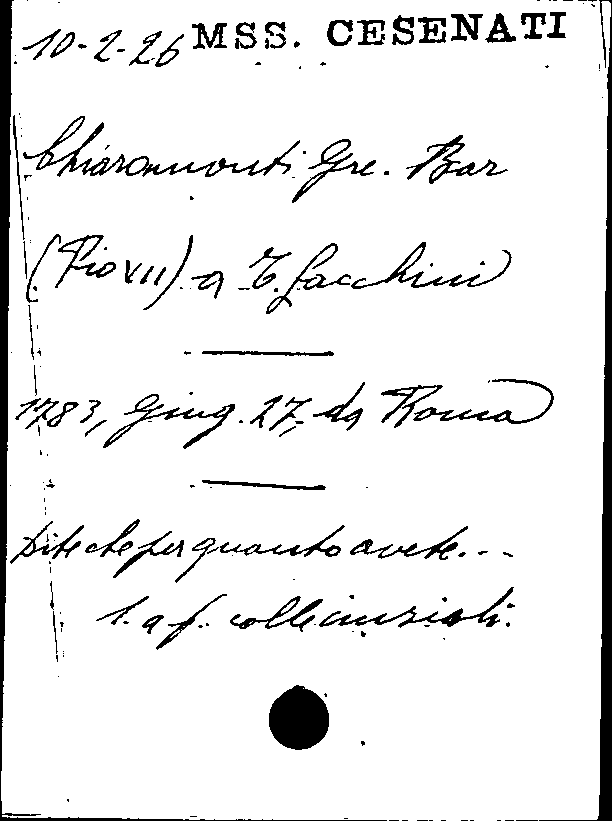 10-2-26 MSS. CESENATI
Chiaramonti Gre. Bar
(Pio VII) a T. Gacchini
1783, Giug. 27, da Roma
Dite che per quanto avete...
l. a f. colle iniziali.